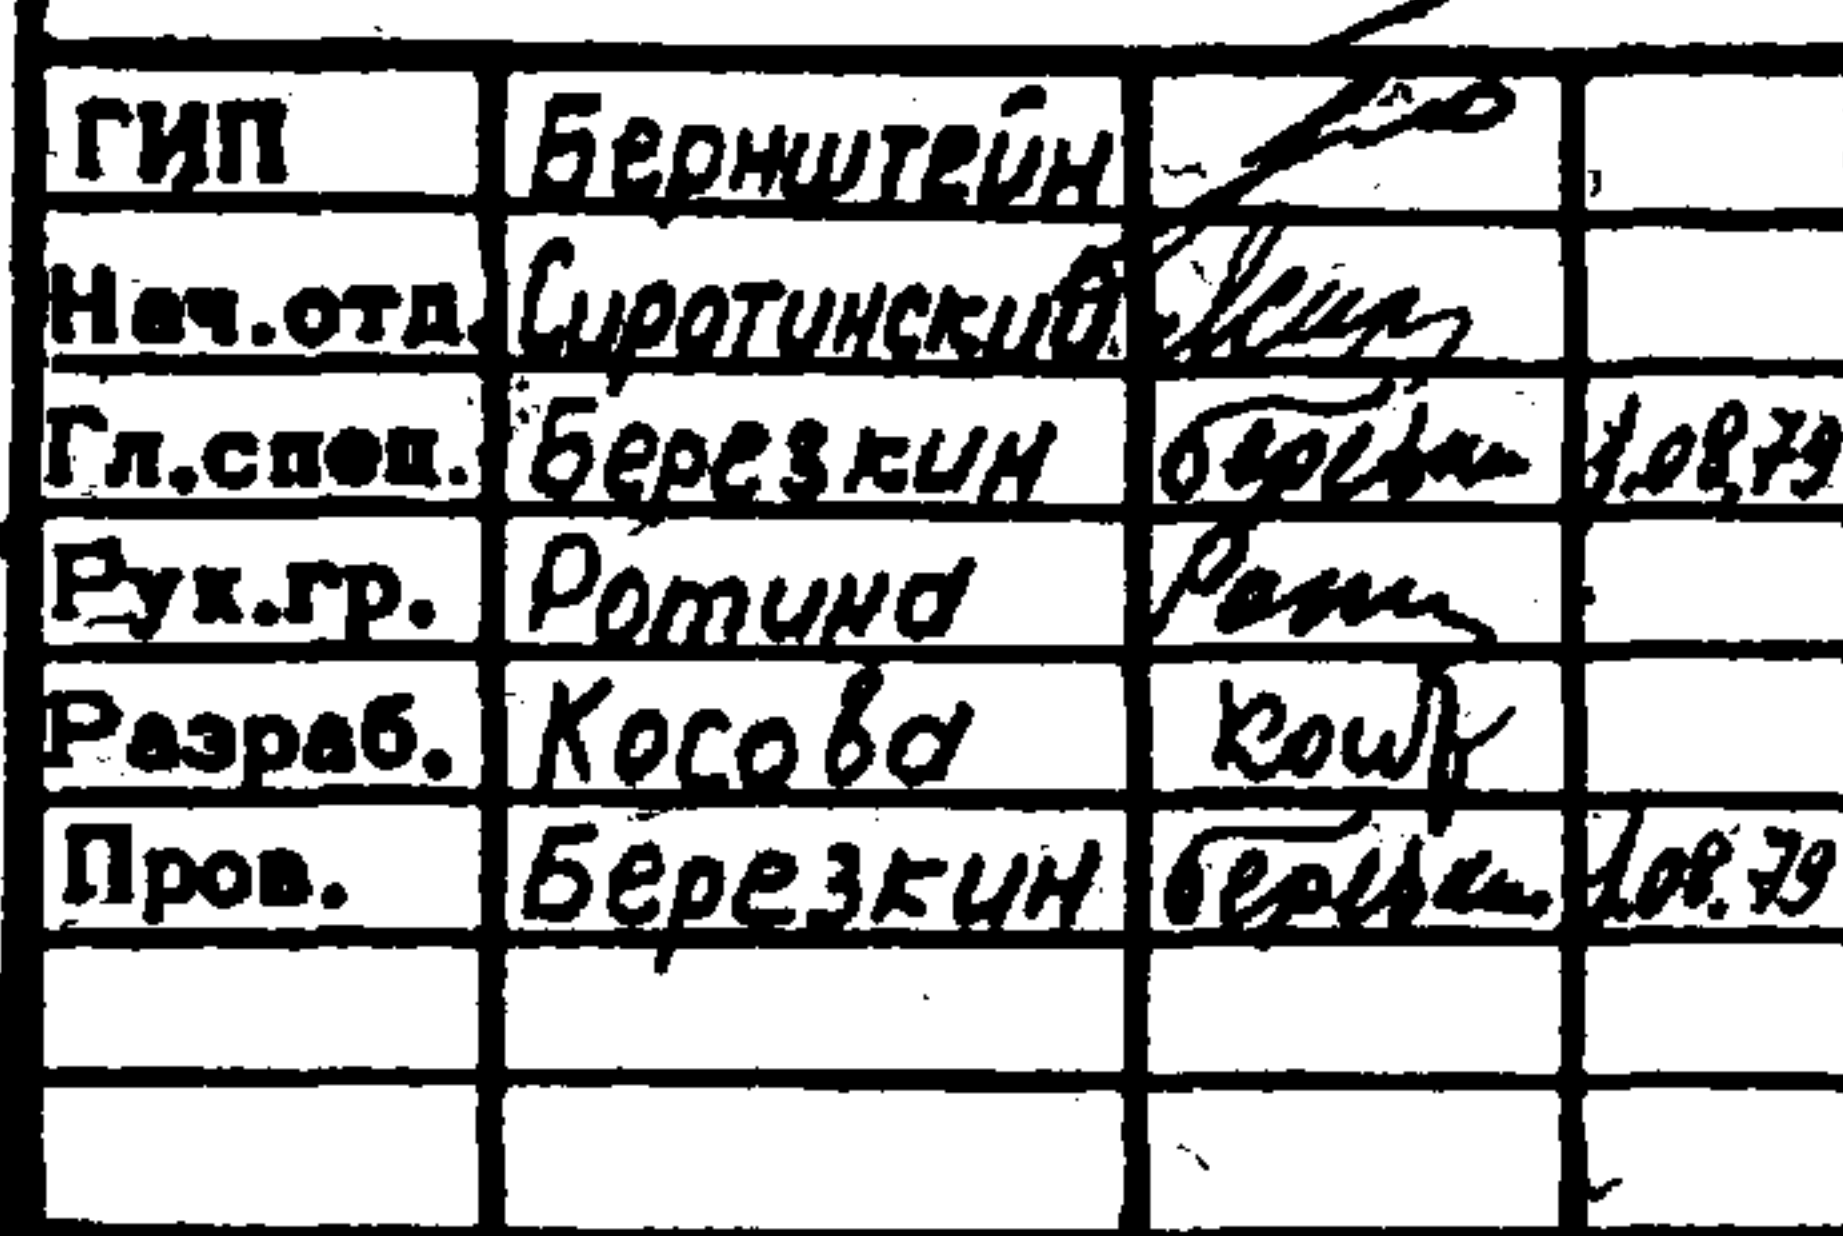 ГИП Бернштейн
Нач.отд. Сиротинский
Гл.спец. Березкин 1.08.79
Рук.гр. Ротина
Разраб. Косова
Пров. Березкин 1.08.79